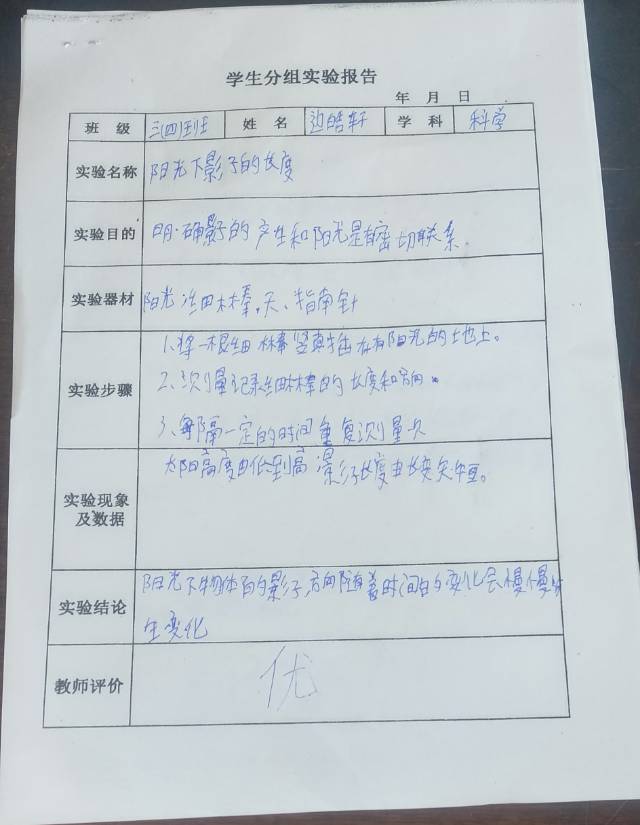 学生分组实验报告
年 月 日
班 级 三(四)班 姓 名 边皓轩 学 科 科学
实验名称 阳光下影子的长度
实验目的 明确影子的产生和阳光是有密切联系。
实验器材 阳光 细木棒,尺、指南针
1、将一根细木棒竖直插在有阳光的土地上。
实验步骤 2、测量记录细木棒的长度和方向。
3、每隔一定的时间重复测量
实验现象及数据 太阳高度由低到高 影子长度由长变短。
实验结论 阳光下物体的影子方向随着时间的变化会慢慢
生变化
教师评价 优